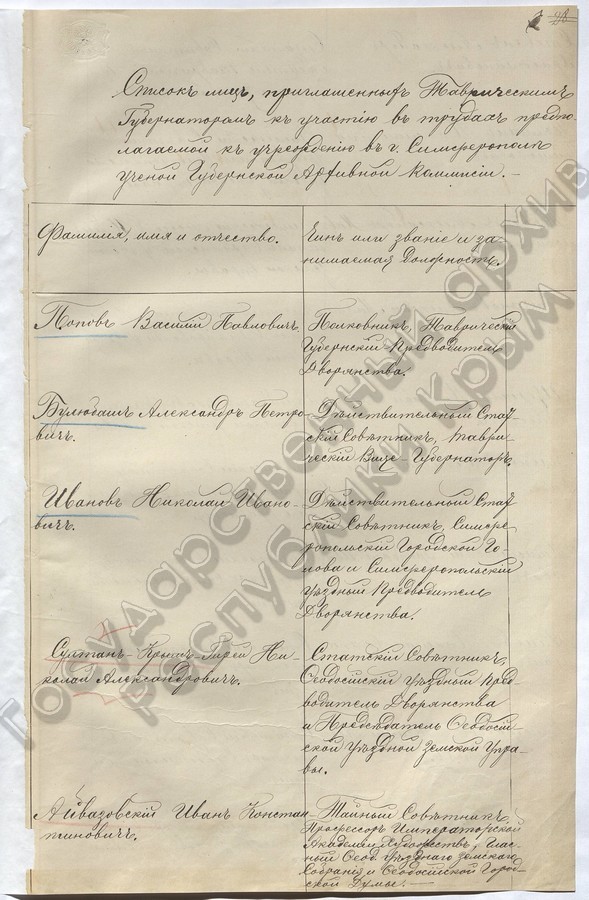 28
Списокъ лицъ, приглашенныхъ Таврическимъ
Губернаторомъ къ участію въ трудахъ предпо-
лагаемой къ учрежденію въ г. Симферополѣ
Ученой Губернской Архивной Коммисіи. —
Фамилія, имя и отчество.
Чинъ или званіе и за-
нимаемая должность.
Поповъ Василій Павловичъ
Полковникъ, Таврическій
Губернскій Предводитель
Дворянства.
Булюбашъ Александръ Петро-
вичъ.
Дѣйствительный Стат-
скій Совѣтникъ, Таври-
ческій Вице Губернаторъ.
Ивановъ Николай Ивано-
вичъ.
Дѣйствительный Стат-
скій Совѣтникъ, Симфе-
ропольскій Городской Го-
лова и Симферопольскій
Уѣздный Предводитель
Дворянства.
Султанъ-Крымъ-Гирей Ни-
колай Александровичъ.
Статскій Совѣтникъ,
Ѳеодосійскій Уѣздный Пред-
водитель Дворянства
и Предсѣдатель Ѳеодосій-
ской Уѣздной Земской Упра-
вы.
Айвазовскій Иванъ Констан-
тиновичъ.
Тайный Совѣтникъ,
Профессоръ Императорской
Академіи Художествъ, Глас-
ный Ѳеод. Уѣзднаго Земскаго
Собранія и Ѳеодосійской Город-
ской Думы. —
Государственный архив
Республики Крым